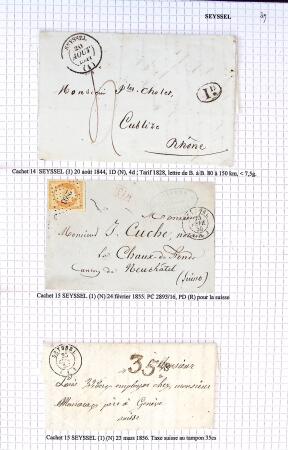 SEYSSEL
SEYSSEL
20
AOUT
(1)
1D
Monsieur
Cublize
Rhône
Cachet 14 SEYSSEL (1) 20 août 1844, 1D (N), 4d ; Tarif 1828, lettre de B. à B. 80 à 150 km, < 7,5g.
Monsieur
Monsieur J. Cuche, notaire
La Chaux-de-Fonds
canton de Neuchâtel
(Suisse)
Cachet 15 SEYSSEL (1) (N) 24 février 1855. PC 2893/16, PD (R) pour la suisse
35
Monsieur
Louis employé chez monsieur
père à Genève
suisse
Cachet 15 SEYSSEL (1) (N) 23 mars 1856. Taxe suisse au tampon 35cs